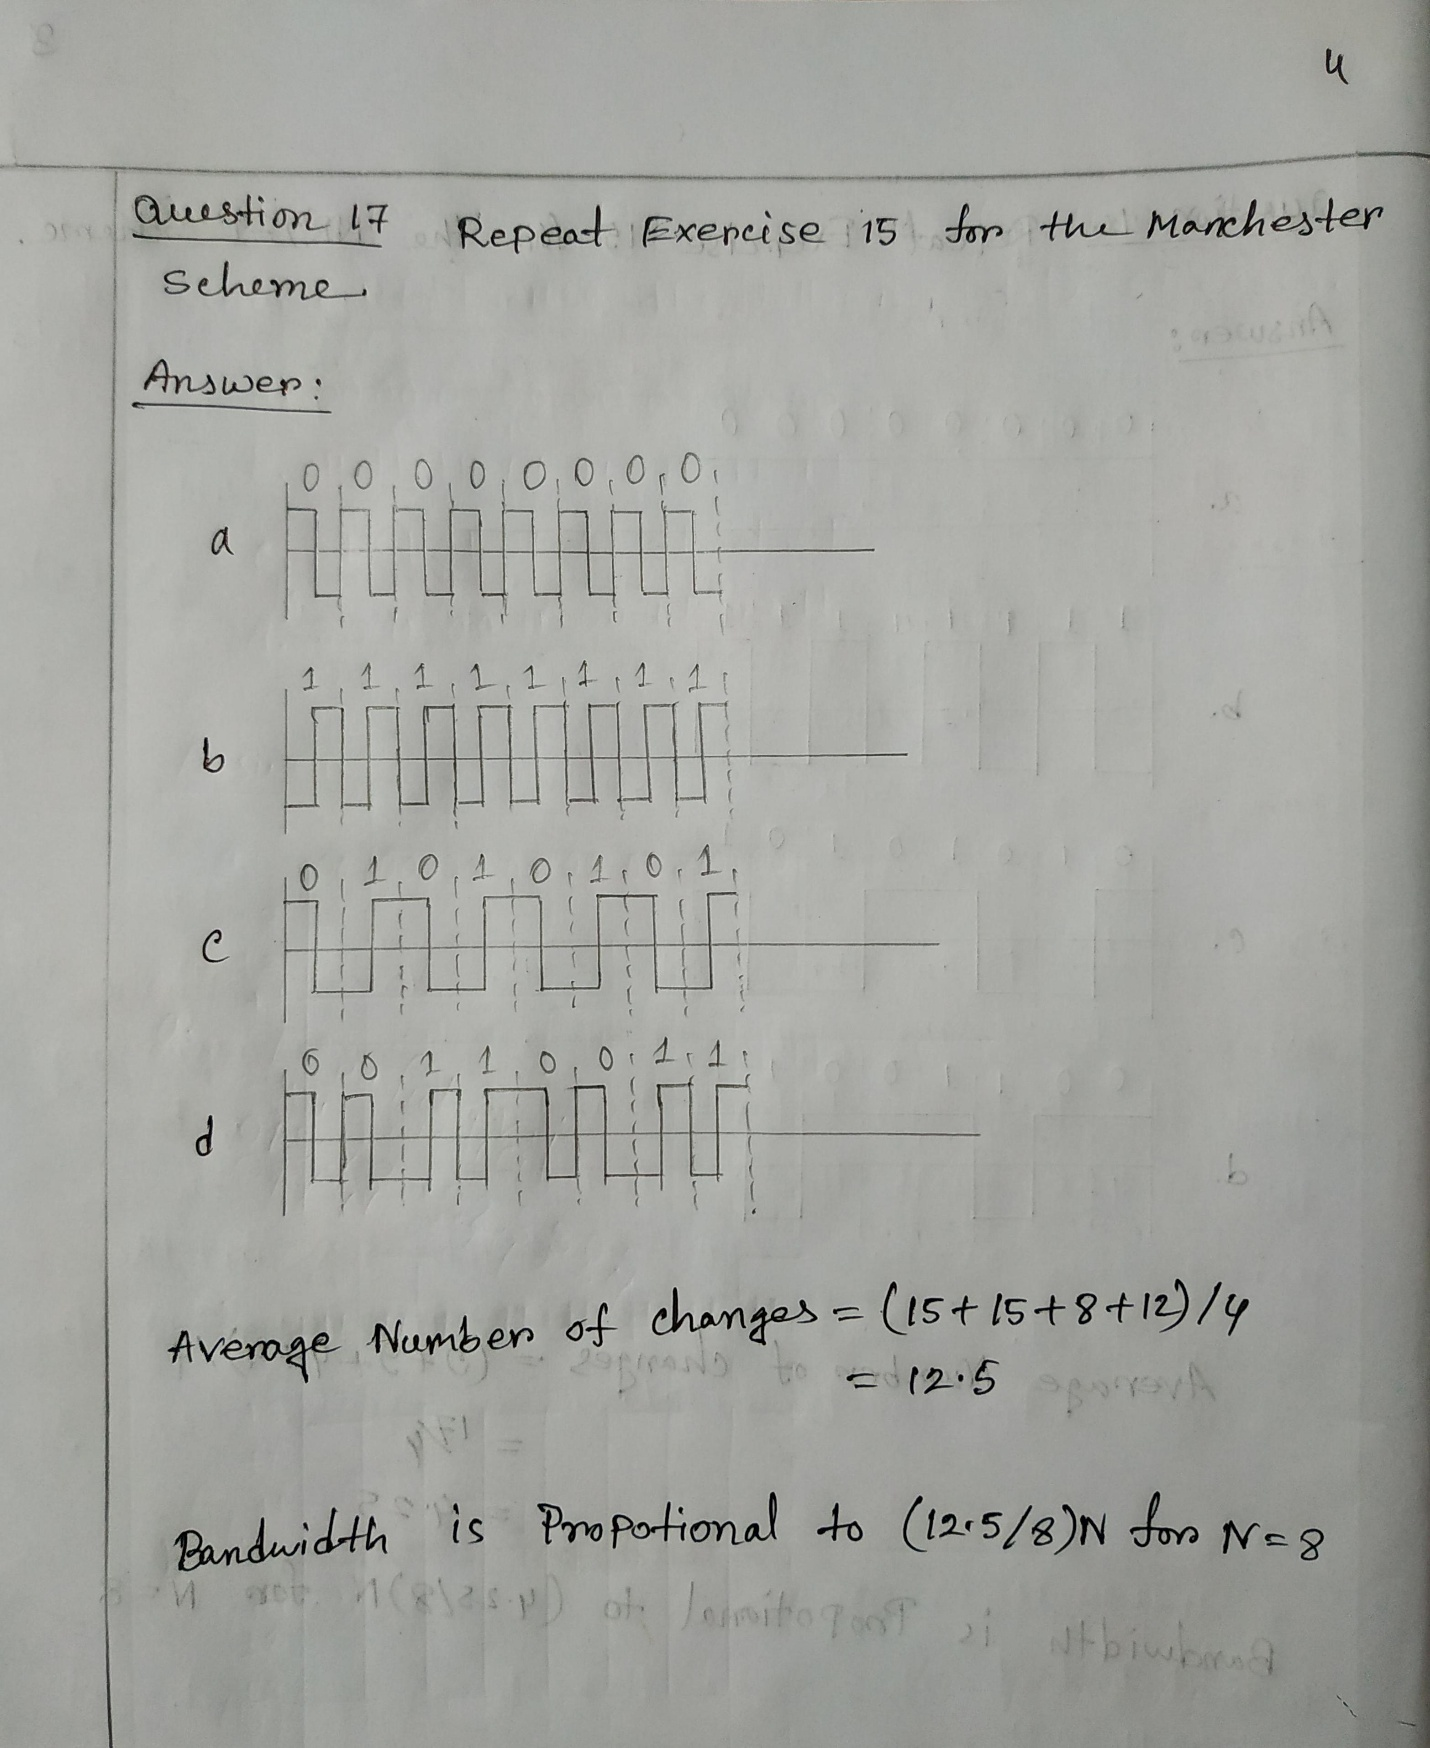 4
Question 17 Repeat Exercise 15 for the Manchester
Scheme.
Answer:
0 0 0 0 0 0 0 0
a
1 1 1 1 1 1 1 1
b
0 1 0 1 0 1 0 1
c
0 0 1 1 0 0 1 1
d
Average Number of changes = (15+15+8+12)/4
= 12.5
Bandwidth is Propotional to (12.5/8)N for N=8